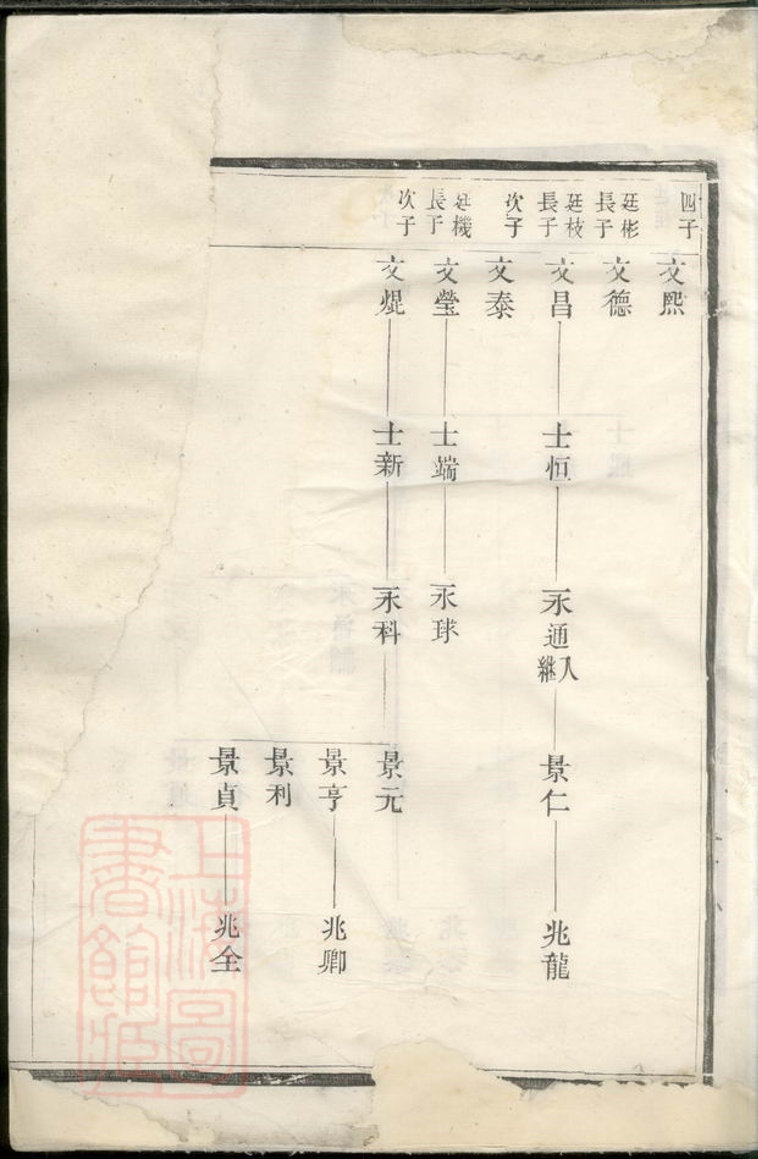 四子
文熈
廷彬
長子
文德
廷枝
長子
文昌
士恒
永通
入繼
景仁
兆龍
次子
文泰
廷機
長子
文瑩
士端
永球
次子
文焜
士新
永科
景元
景亨
兆卿
景利
景貞
兆全
上海圖
書館藏